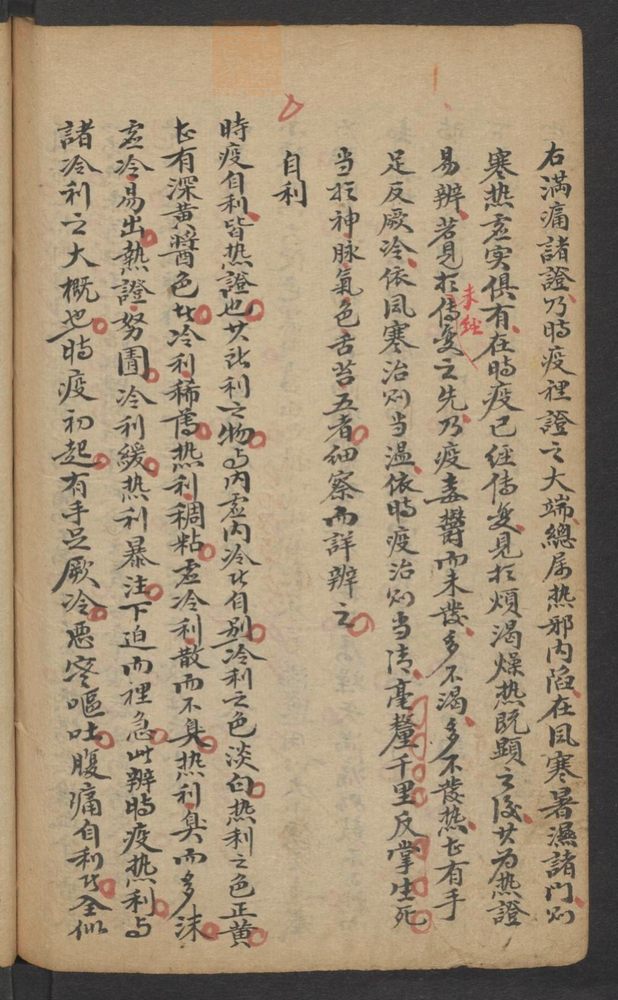 右滿痛諸證乃時疫裡證之大端總屬热邪內陷在風寒暑濕諸門则
寒热虛实俱有在時疫已經傳变見扵煩渴燥热旣顯之後其为热證
易辨若見扵未经傳変之先乃疫毒鬱而未發多不渴多不發热且有手
足反厥冷依風寒治则当温依時疫治则当清毫釐千里反掌生死
当扵神脉氣色舌苔五者細察而詳辨之
自利
時疫自利皆热證也其所利之物与內虛內冷者自别冷利之色淡白热利之色正黄
甚有深黄醬色者冷利稀薄热利稠粘虛冷利散而不臭热利臭而多沫
虛冷易出熱證努圊冷利緩热利暴注下迫而裡急此辨時疫热利与
諸冷利之大概也時疫初起有手足厥冷惡寒嘔吐腹痛自利者全似